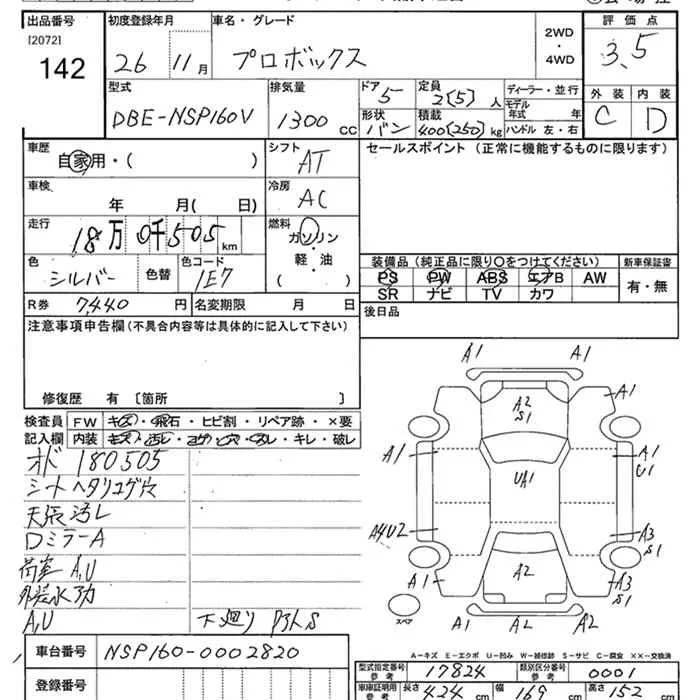 出品番号 初度登録年月 車名・グレード 評価点
[2072] 142
26 11月 プロボックス 2WD・4WD 3.5
型式 排気量 ドア 5 定員 2(5)人 ディーラー・並行 外装 内装
DBE-NSP160V 1300 CC 形状 バン 積載 400(250)kg モデル年式 年 ハンドル 左・右 C D
車歴 自家用・( ) シフト AT セールスポイント(正常に機能するものに限ります)
車検 年 月( 日) 冷房 AC
走行 18万0千505km 燃料 ガソリン・軽・油( )
色 シルバー 色替 色コード 1E7
装備品(純正品に限り○をつけてください) 新車保証書
PS PW ABS エアB AW 有・無
SR ナビ TV カワ
R券 7,440円 名変期限 月 日 後日品
注意事項申告欄(不具合内容等は具体的に記入して下さい)
修復歴 有 〔箇所 〕
検査員記入欄 FW キズ・飛石・ヒビ割・リペア跡・×要
内装 キズ・汚レ・コゲ・穴・スレ・キレ・破レ
オド 180505
シートヘタリコゲ穴
天張汚レ
DミラーA
荷室 A,U
外装水アカ
A,U 下廻り P外S
A1 A1
A2 S1 A1
A1 UA1 A1 U1
A4U2 A3 S1
A1 A2 A3 S1
スペア A1 A2 A2
A-キズ E-エクボ U-凹み W-補修跡 S-サビ C-腐食 XX-交換済
車台番号 NSP160-0002820
登録番号
型式指定番号 参考 17824 類別区分番号 参考 0001
車庫証明用 参考 長さ 424cm 幅 169cm 高さ 152cm